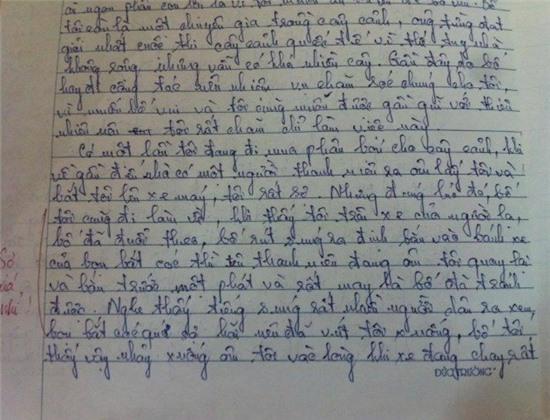 tôi còn là một chuyên gia trong cây cảnh, ông từng đạt
giải nhất cuộc thi cây cảnh quốc tế vì thế tuy nhà
không rộng, nhưng vẫn có khá nhiều cây. Gần đây do bố
hay đi công tác nên nhiệm vụ chăm sóc chúng cho tôi,
vì muốn bố vui và tôi cũng muốn được gần gũi với thiên
nhiên nên tôi rất chăm chỉ làm việc này.
Có một lần tôi đang đi mua phân bón cho cây cảnh, khi
về gần đến nhà có một người thanh niên ra ôm lấy tôi và
bắt tôi lên xe máy, tôi rất sợ. Nhưng đúng lúc đó, bố
tôi cũng đi làm về, khi thấy tôi trên xe của người lạ,
bố đã đuổi theo, bố rút súng ra định bắn vào bánh xe
của bọn bắt cóc thì thanh niên đang ôm tôi quay lại
và bắn trước một phát và rất may là bố đã tránh
được. Nghe thấy tiếng súng rất nhiều người dân ra xem,
bọn bắt cóc quá sợ hãi nên đã vứt tôi xuống, bố tôi
thấy vậy nhảy xuống ôm tôi vào lòng khi xe đang chạy rất
Sợ
quá
nhỉ!
ĐỨC TRƯỜNG